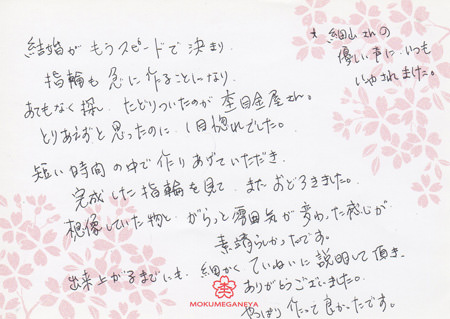 結婚が もうスピードで 決まり
指輪も 急に 作ることになり、
あてもなく 探し、たどりついたのが 杢目金屋さん。
とりあえずと 思ったのに、1目惚れでした。
短い時間の中で 作りあげていただき、
完成した指輪を見て、また おどろきました。
想像していた物と がらっと 雰囲気が 変わった感じが
素晴らしかったです。
出来上がるまでにも、細かく ていねいに 説明して 頂き、
ありがとうございました。
やっぱり 作って 良かったです。
* 細山さんの
優しい声に、いつも
いやされました。
MOKUMEGANEYA